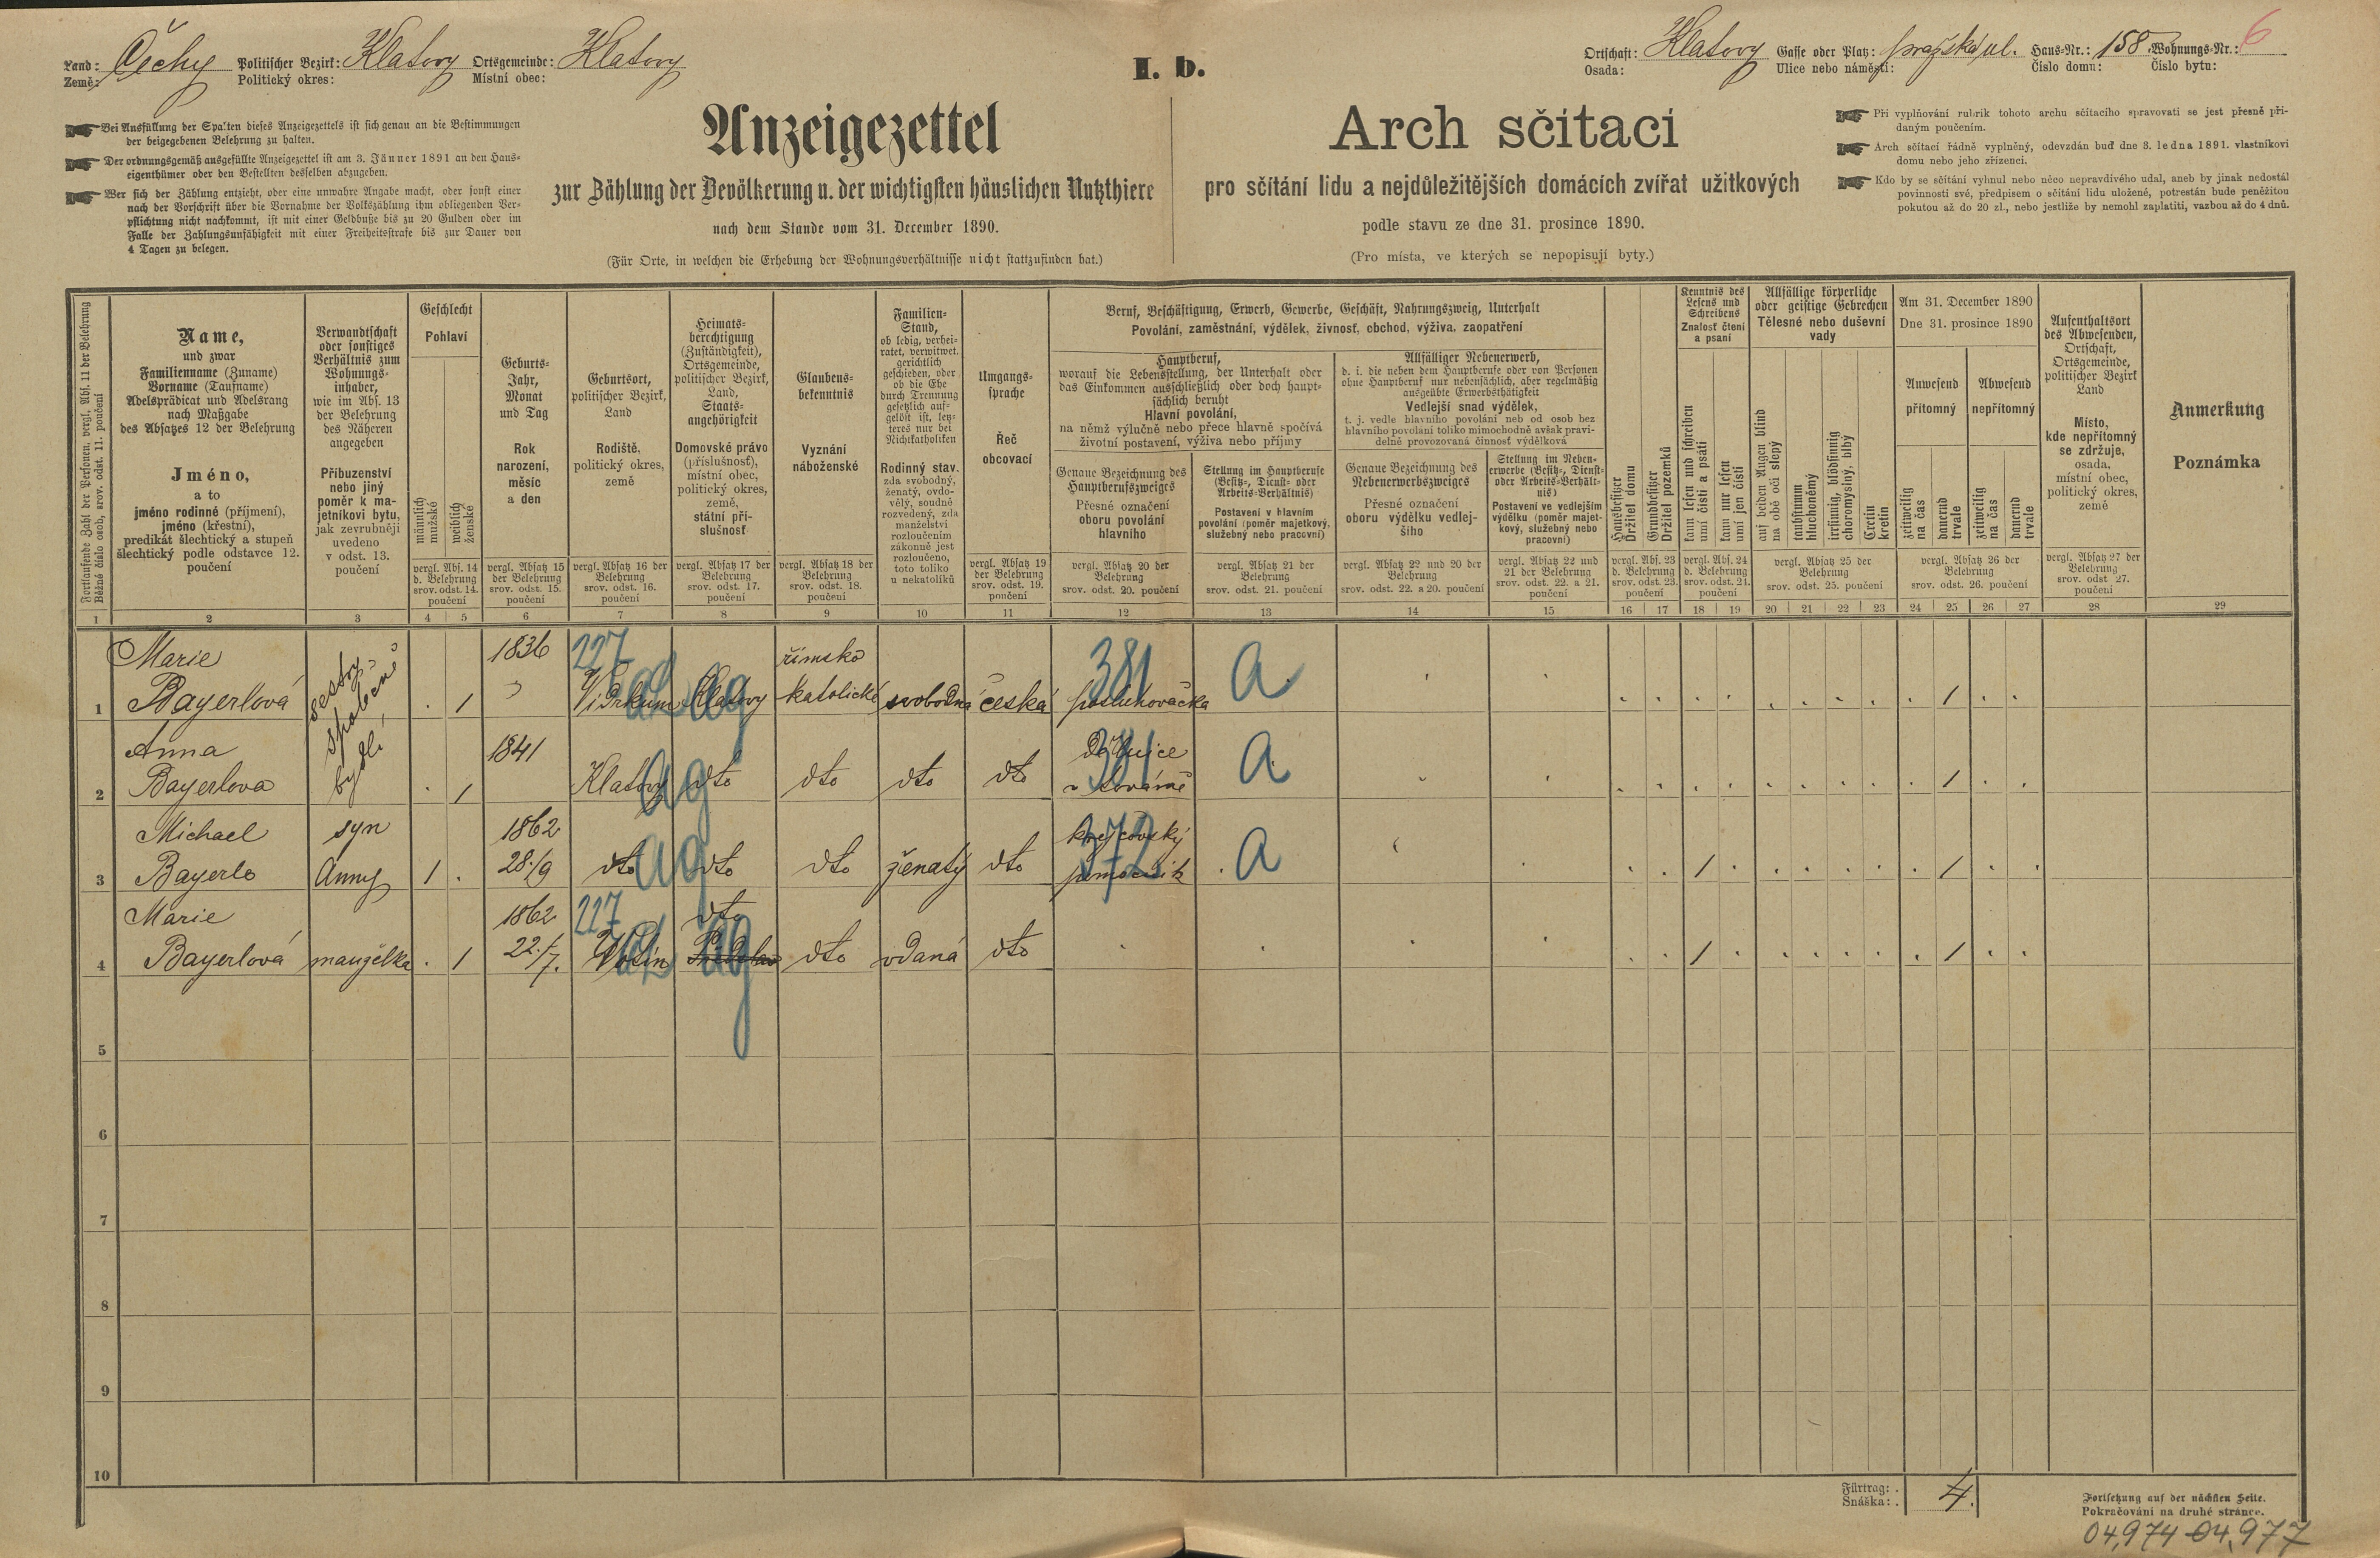 Land: Země: Čechy Politischer Bezirk: Politický okres: Klatovy Ortsgemeinde: Místní obec: Klatovy
I. b.
Ortschaft: Osada: Klatovy Gasse oder Platz: Ulice nebo náměstí: pražská ul. Haus-Nr.: Číslo domu: 158 Wohnungs-Nr.: Číslo bytu: 6
Bei Ausfüllung der Spalten dieses Anzeigezettels ist sich genau an die Bestimmungen
der beigegebenen Belehrung zu halten.
Der ordnungsgemäß ausgefüllte Anzeigezettel ist am 3. Jänner 1891 an den Haus-
eigenthümer oder den Bestellten desselben abzugeben.
Wer sich der Zählung entzieht, oder eine unwahre Angabe macht, oder sonst einer
nach der Vorschrift über die Vornahme der Volkszählung ihm obliegenden Ver-
pflichtung nicht nachkommt, ist mit einer Geldbuße bis zu 20 Gulden oder im
Falle der Zahlungsunfähigkeit mit einer Freiheitsstrafe bis zur Dauer von
4 Tagen zu belegen.
Anzeigezettel
zur Zählung der Bevölkerung u. der wichtigsten häuslichen Nutzthiere
nach dem Stande vom 31. December 1890.
(Für Orte, in welchen die Erhebung der Wohnungsverhältnisse nicht stattzufinden hat.)
Arch sčítací
pro sčítání lidu a nejdůležitějších domácích zvířat užitkových
podle stavu ze dne 31. prosince 1890.
(Pro místa, ve kterých se nepopisují byty.)
Při vyplňování rubrik tohoto archu sčítacího spravovati se jest přesně při-
daným poučením.
Arch sčítací řádně vyplněný, odevzdán buď dne 3. ledna 1891. vlastníkovi
domu nebo jeho zřízenci.
Kdo by se sčítání vyhnul nebo něco nepravdivého udal, aneb by jinak nedostál
povinnosti své, předpisem o sčítání lidu uložené, potrestán bude peněžitou
pokutou až do 20 zl., nebo jestliže by nemohl zaplatiti, vazbou až do 4 dnů.
Fortlaufende Zahl der Personen, vergl. Abs. 11 der Belehrung
Běžné číslo osob, srov. odst. 11. poučení
Name,
und zwar
Familienname (Zuname)
Vorname (Taufname)
Adelsprädicat und Adelsrang
nach Maßgabe
des Absatzes 12 der Belehrung
Jméno,
a to
jméno rodinné (příjmení),
jméno (křestní),
predikát šlechtický a stupeň
šlechtický podle odstavce 12.
poučení
Verwandtschaft
oder sonstiges
Verhältnis zum
Wohnungs-
inhaber,
wie im Abs. 13
der Belehrung
des Näheren
angegeben
Příbuzenství
nebo jiný
poměr k ma-
jetníkovi bytu,
jak zevrubněji
uvedeno
v odst. 13.
poučení
Geschlecht
Pohlaví
männlich
mužské
weiblich
ženské
vergl. Abs. 14
d. Belehrung
srov. odst. 14.
poučení
Geburts-
Jahr,
Monat
und Tag
Rok
narození,
měsíc
a den
vergl. Absatz 15
der Belehrung
srov. odst. 15.
poučení
Geburtsort,
politischer Bezirk,
Land
Rodiště,
politický okres,
země
vergl. Absatz 16 der
Belehrung
srov. odst. 16.
poučení
Heimats-
berechtigung
(Zuständigkeit),
Ortsgemeinde,
politischer Bezirk,
Land,
Staats-
angehörigkeit
Domovské právo
(příslušnosť),
místní obec,
politický okres,
země,
státní pří-
slušnosť
vergl. Absatz 17 der
Belehrung
srov. odst. 17.
poučení
Glaubens-
bekenntnis
Vyznání
náboženské
vergl. Absatz 18 der
Belehrung
srov. odst. 18.
poučení
Familien-
Stand,
ob ledig, verhei-
ratet, verwitwet,
gerichtlich
geschieden, oder
ob die Ehe
durch Trennung
gesetzlich auf-
gelöst ist, letz-
teres nur bei
Nichtkatholiken
Rodinný stav.
zda svobodný,
ženatý, ovdo-
vělý, soudně
rozvedený, zda
manželství
rozloučením
zákonně jest
rozloučeno,
toto toliko
u nekatolíků
Umgangs-
sprache
Řeč
obcovací
vergl. Absatz 19
der Belehrung
srov. odst. 19.
poučení
Beruf, Beschäftigung, Erwerb, Gewerbe, Geschäft, Nahrungszweig, Unterhalt
Povolání, zaměstnání, výdělek, živnosť, obchod, výživa, zaopatření
Hauptberuf,
worauf die Lebensstellung, der Unterhalt oder
das Einkommen ausschließlich oder doch haupt-
sächlich beruht
Hlavní povolání,
na němž výlučně nebo přece hlavně spočívá
životní postavení, výživa nebo příjmy
Genaue Bezeichnung des
Hauptberufszweiges
Přesné označení
oboru povolání
hlavního
vergl. Absatz 20 der
Belehrung
srov. odst. 20. poučení
Stellung im Hauptberufe
(Besitz-, Dienst- oder
Arbeits-Verhältnis)
Postavení v hlavním
povolání (poměr majetkový,
služebný nebo pracovní)
vergl. Absatz 21 der
Belehrung
srov. odst. 21. poučení
Allfälliger Nebenerwerb,
d. i. die neben dem Hauptberufe oder von Personen
ohne Hauptberuf nur nebensächlich, aber regelmäßig
ausgeübte Erwerbsthätigkeit
Vedlejší snad výdělek,
t. j. vedle hlavního povolání neb od osob bez
hlavního povolání toliko mimochodně avšak pravi-
delně provozovaná činnosť výdělková
Genaue Bezeichnung des
Nebenerwerbszweiges
Přesné označení
oboru výdělku vedlej-
šího
vergl. Absatz 22 und 20 der
Belehrung
srov. odst. 22. a 20. poučení
Stellung im Neben-
erwerbe (Besitz-, Dienst-
oder Arbeits-Verhält-
nis)
Postavení ve vedlejším
výdělku (poměr majet-
kový, služebný nebo
pracovní)
vergl. Absatz 22 und
21 der Belehrung
srov. odst. 22. a 21.
poučení
Hausbesitzer
Držitel domu
Grundbesitzer
Držitel pozemků
vergl. Abs. 23
d. Belehrung
srov. odst. 23.
poučení
Kenntnis des
Lesens und
Schreibens
Znalosť čtení
a psaní
kann lesen und schreiben
umí čísti a psáti
kann nur lesen
umí jen čísti
vergl. Abs. 24
d. Belehrung
srov. odst. 24.
poučení
Allfällige körperliche
oder geistige Gebrechen
Tělesné nebo duševní
vady
auf beiden Augen blind
na obě oči slepý
taubstumm
hluchoněmý
irrsinnig, blödsinnig
choromyslný, blbý
Cretin
kretin
vergl. Absatz 25 der
Belehrung
srov. odst. 25. poučení
Am 31. December 1890
Dne 31. prosince 1890
Anwesend
přítomný
Abwesend
nepřítomný
zeitweilig
na čas
dauernd
trvale
zeitweilig
na čas
dauernd
trvale
vergl. Absatz 26 der
Belehrung
srov. odst. 26. poučení
Aufenthaltsort
des Abwesenden,
Ortschaft,
Ortsgemeinde,
politischer Bezirk
Land
Místo,
kde nepřítomný
se zdržuje,
osada,
místní obec,
politický okres,
země
vergl. Absatz 27 der
Belehrung
srov. odst 27.
poučení
Anmerkung
Poznámka
1 2 3 4 5 6 7 8 9 10 11 12 13 14 15 16 17 18 19 20 21 22 23 24 25 26 27 28 29
Marie 1836 227 římsko 381 a
1 Bayerlová sestry společně bydlí . 1 Klatovy katolické svobodná česká posluhovačka 1
Anna 1841 381 a
2 Bayerlova . 1 Klatovy ag dto dto dto dto v továrně 1
Michael syn 1862 krejčovský 372 a
3 Bayerle Anny 1 . 28./9 dto ag dto dto ženatý dto pomocník 1 1
Marie 1862 227 dto
4 Bayerlová manželka . 1 22./7. ag dto vdaná dto 1 1
5
6
7
8
9
10
Fürtrag: .
Snáška: . 4.
Fortsetzung auf der nächsten Seite.
Pokračování na druhé stránce.
04,974 04,977